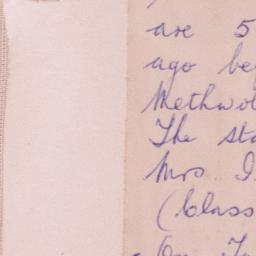 are 5
ago be
Methwol
The sta
Mrs I
(Class
On